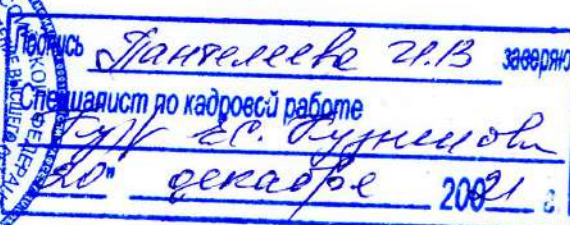 Подпись Пантелеева И.В заверяю
Специалист по кадровой работе
Е.С. Кузнецова
"20" декабря 2021 г